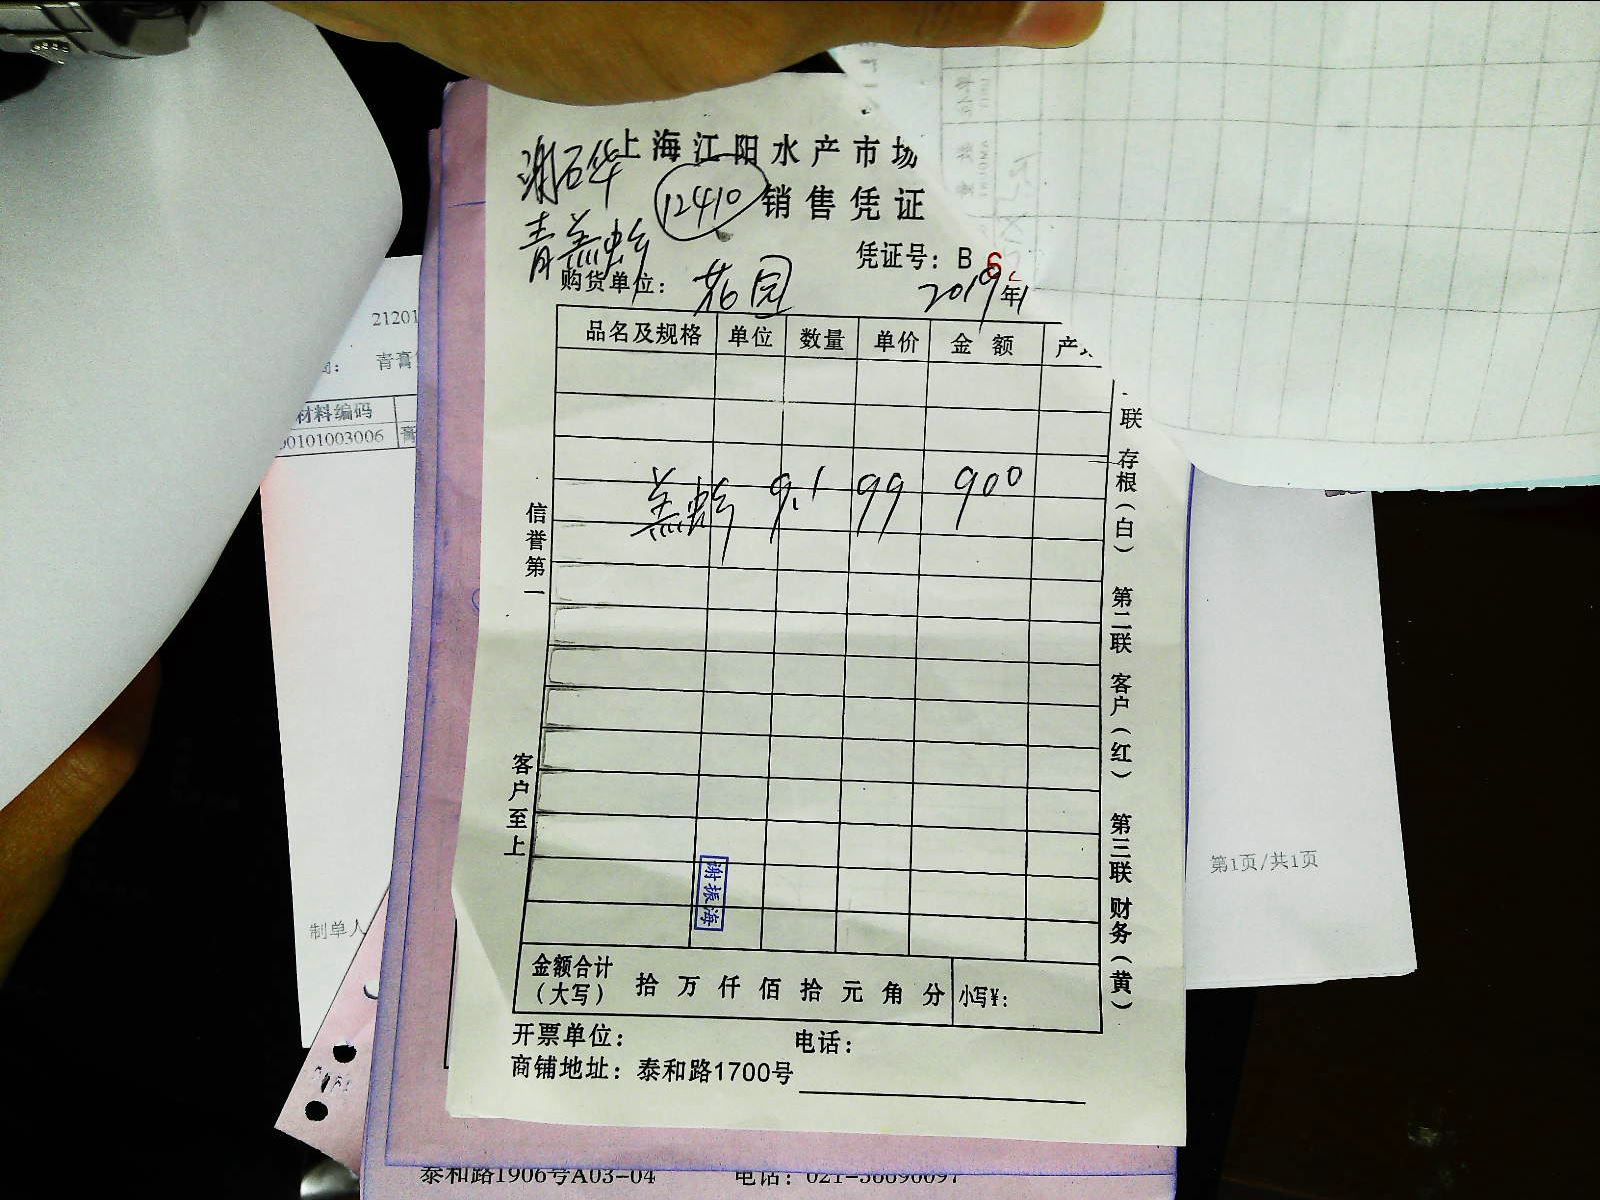 上海江阳水产市场
谢石华
12410
销售凭证
青羔蟹
凭证号：B 6
购货单位： 花园
2019年
品名及规格 单位 数量 单价 金额
羔蟹 9.1 99 900
信誉第一
客户至上
联 存根（白） 第二联 客户（红） 第三联 财务（黄）
谢振海
金额合计
（大写） 拾 万 仟 佰 拾 元 角 分 小写¥：
开票单位： 电话：
商铺地址：泰和路1700号
21201
青膏
材料编码
00101003006 膏
制单人
第1页/共1页
泰和路1906号A03-04 电话：021-56690097